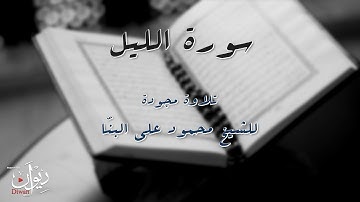 سورة الليل
تلاوة مجودة
للشيخ محمود على البنّا
ديوان
Diwan